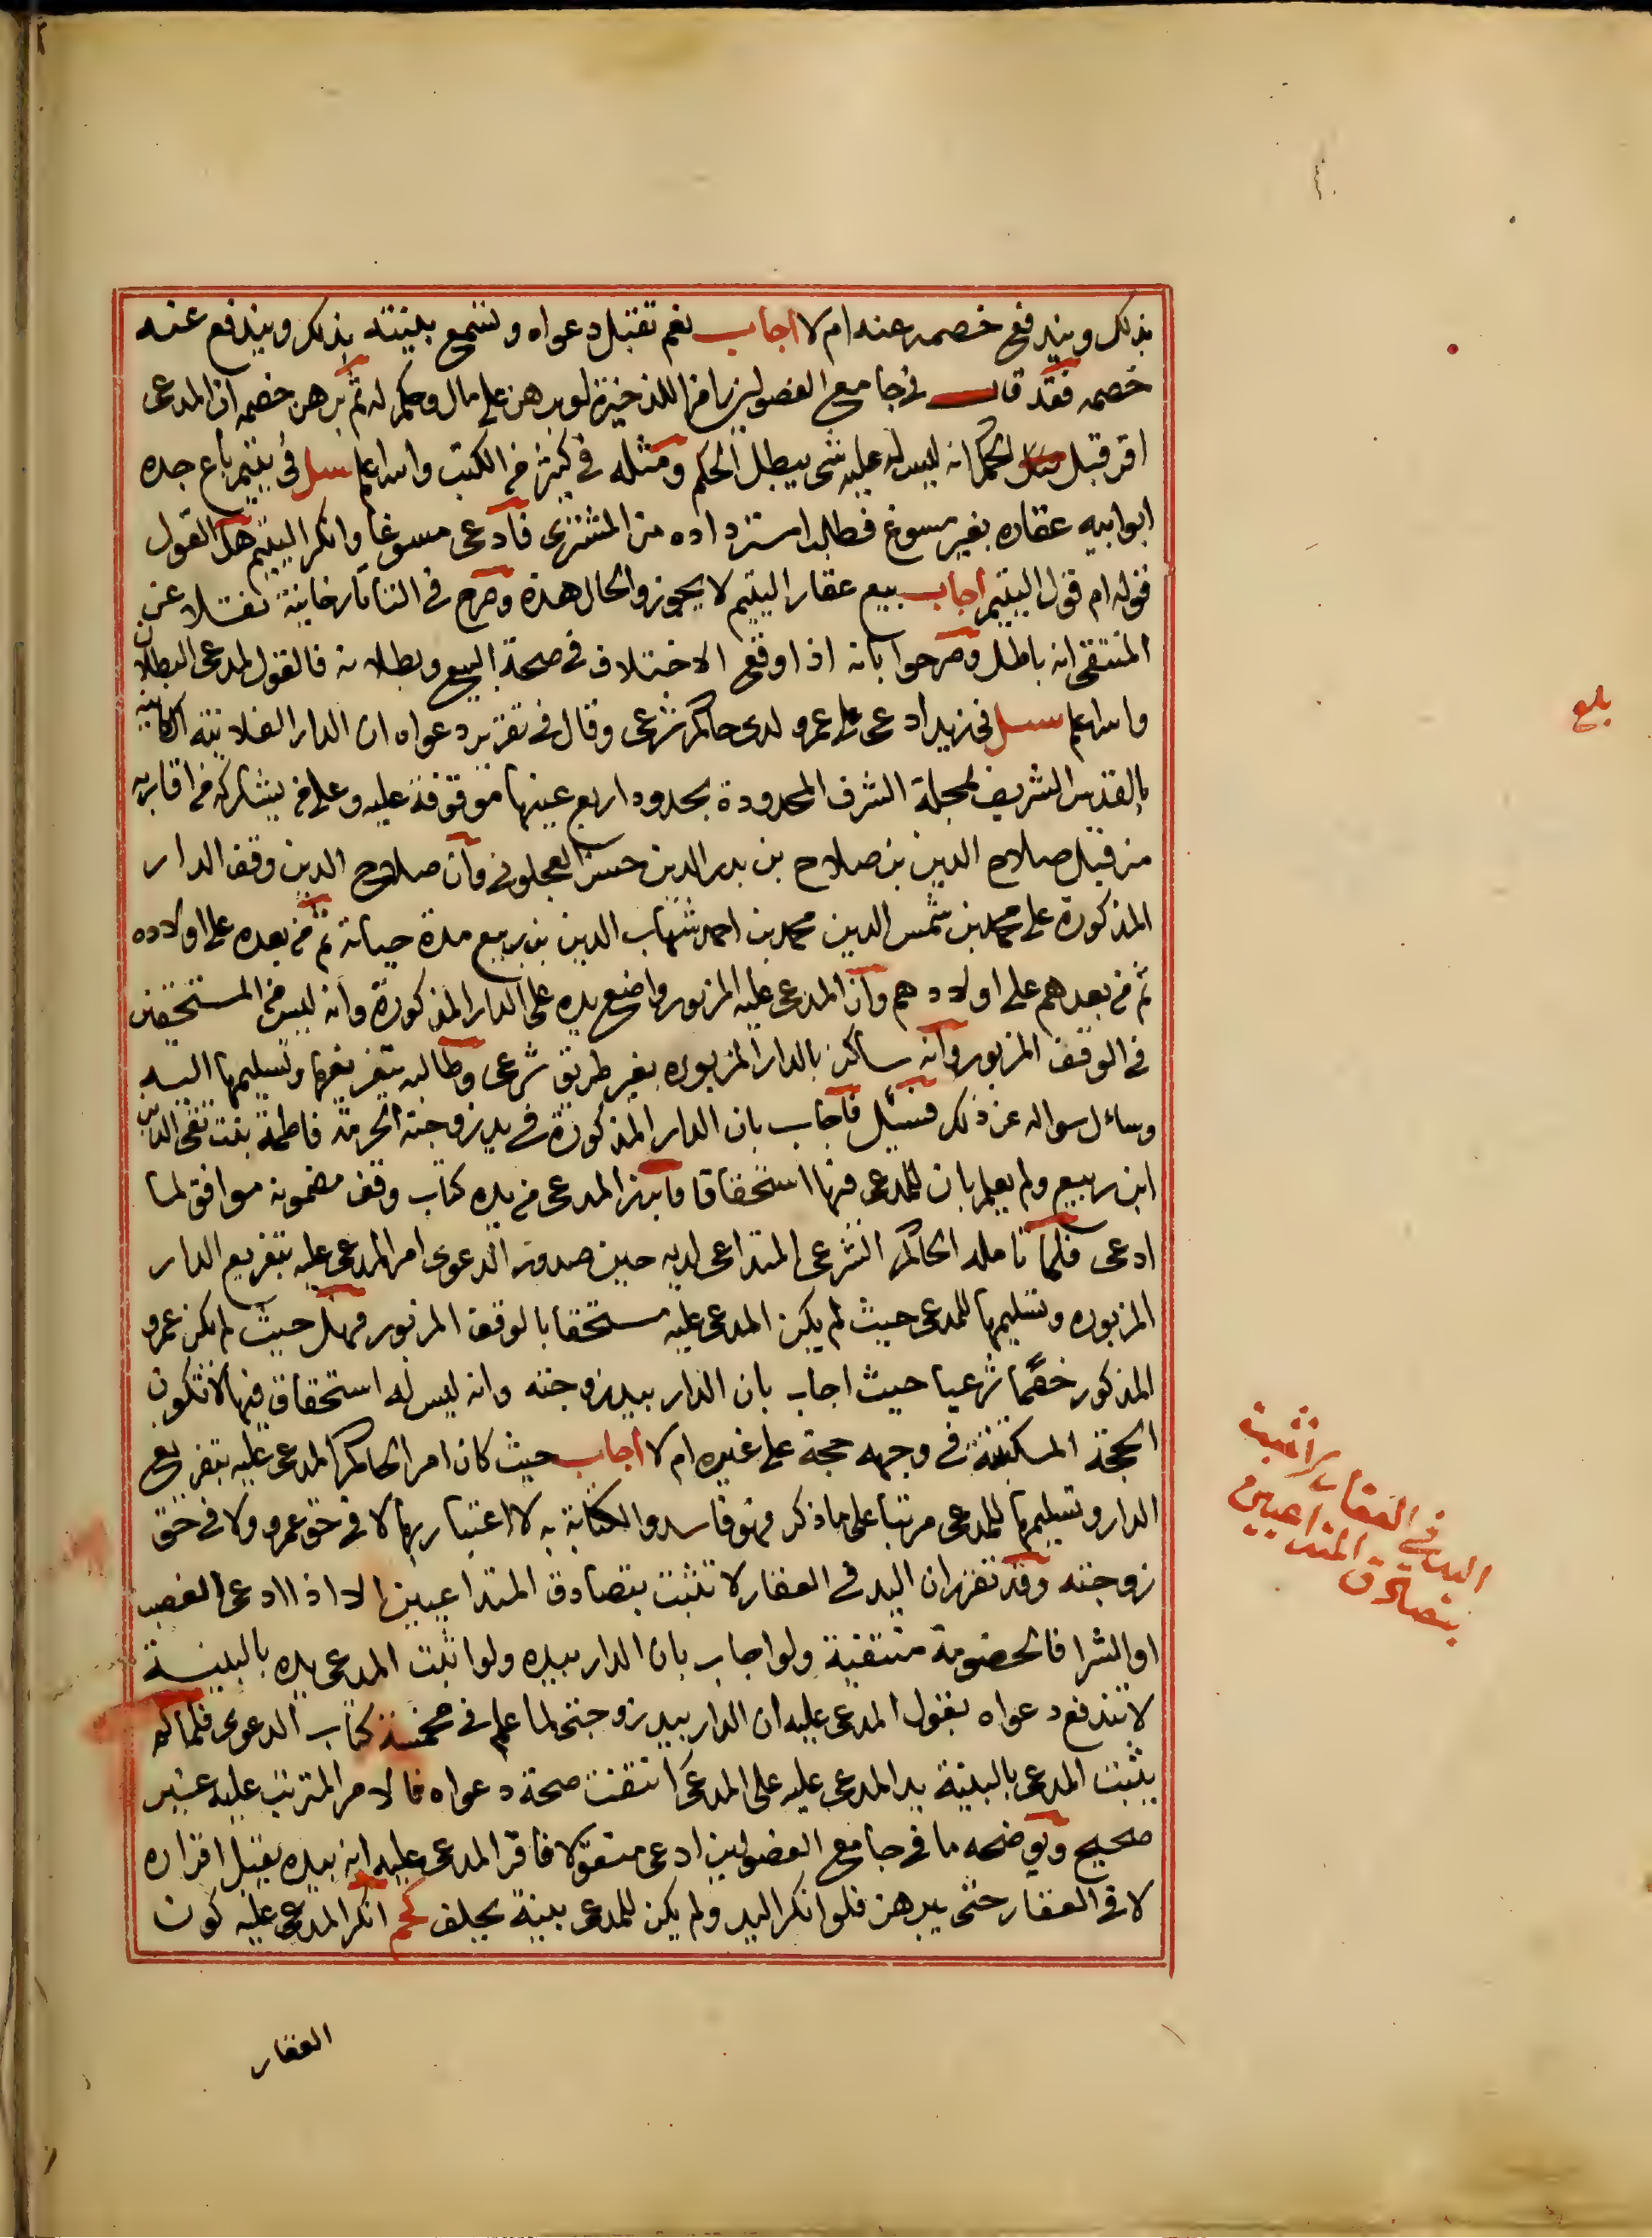 بذلك ويندفع خصمه عنه ام لا اجاب نعم تقبل دعواه وتسمع بينته بذلك ويندفع عنه
خصمه فقد قال في جامع الفصولين رامزا للذخيرة لو برهن على مال وحكم له ثم برهن خصمه ان المدعى
اقر قبل الحكم انه ليس له عليه شى يبطل الحكم ومثله في كثير من الكتب والله اعلم سىل في يتيم باع جده
ابو ابيه عقاره بغير مسوغ فطلب استرداده من المشترى فادعى مسوغا وانكر اليتيم هل القول
قوله ام قول اليتيم اجاب بيع عقار اليتيم لا يجوز والحال هذه وصرح في التتارخانية نقلا عن
المنتقى انه باطل وصرحوا بانه اذا وقع الاختلاف في صحة البيع وبطلانه فالقول لمدعى البطلان
والله اعلم سىل في زيد ادعى على عمرو لدى حاكم شرعى وقال في تقرير دعواه ان الدار الفلانيه الكاينه
بالقدس الشريف بمحلة الشرف المحدودة بحدود اربع عينها موقوفة عليه وعلى من يشاركه من اقاربه
من قبل صلاح الدين بن صلاح بن بدر الدين حسن العجلونى وان صلاح الدين وقف الدار
المذكورة على محمد بن شمس الدين محمد بن احمد شهاب الدين بن ربيع مدة حياته ثم من بعده على اولاده
ثم من بعدهم على اولادهم وان المدعى عليه المزبور واضع يده على الدار المذكورة وانه ليس من المستحقين
في الوقف المزبور وانه ساكن بالدار المزبوره بغير طريق شرعى وطالبه بتفريغها وتسليمها اليه
وسأل سواله عن ذلك فسئل فاجاب بان الدار المذكورة في يد زوجته الحرمة فاطمة بنت تقى الدين
ابن ربيع ولم يعلم بان للمدعى فيها استحقاقا فابرز المدعى من يده كتاب وقف مضمونه موافق لما
ادعى فلما تامله الحاكم الشرعى المتداعى لديه حين صدور الدعوى امر المدعى عليه بتفريغ الدار
المزبوره وتسليمها للمدعى حيث لم يكن المدعى عليه مستحقا بالوقف المزبور فهل حيث لم يكن عمرو
المذكور خصما شرعيا حيث اجاب بان الدار بيد زوجته وانه ليس له استحقاق فيها لا تكون
الحجة المكتتبة في وجهه حجة على غيره ام لا اجاب حيث كان امر الحاكم المدعى عليه بتفريغ
الدار وتسليمها للمدعى مرتبا على ما ذكر فهو فاسد والكتابة به لا اعتبار بها لا في حق عمرو ولا في حق
زوجته وقد تقرر ان اليد في العقار لا تثبت بتصادق المتداعيين الا اذا ادعى الغصب
او الشرا فالخصومة منتفية ولو اجاب بان الدار بيده ولو اثبت المدعى يده بالبينة
لا تندفع دعواه بقول المدعى عليه ان الدار بيد زوجتى لما علم في مخمسة كتاب الدعوى فلما لم
يثبت المدعى بالبينة يد المدعى عليه على المدعى انتفت صحة دعواه فالامر المترتب عليه غير
صحيح ويوضحه ما في جامع الفصولين ادعى منقولا فاقر المدعى عليه انه بيده يقبل اقراره
لا في العقار حتى يبرهن فلو انكر اليد ولم يكن للمدعى بينة يحلف انكر المدعى عليه كون
العقار
بلغ
اليد في العقار لا تثبت
بتصادق المتداعيين